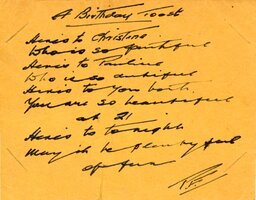 A Birthday Toast
Here's to Christine
Who is so faithful
Here's to Pauline
Who is so dutiful
Here's to you both
You are so beautiful
at 21
Here's to tonight
May it be plenty full
of fun